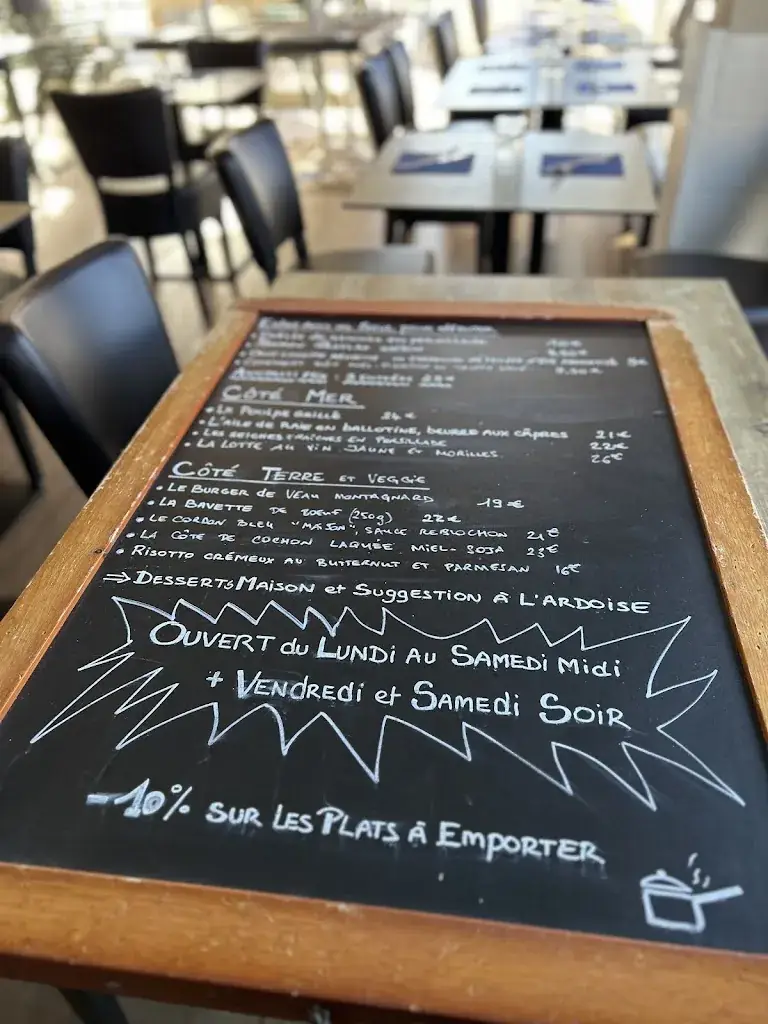 CÔTÉ MER
• LE POULPE GRILLÉ 24€
• L'AILE DE RAIE EN BALLOTINE, BEURRE AUX CÂPRES 21€
• LES SEICHES FRAÎCHES EN PERSILLADE 22€
• LA LOTTE AU VIN JAUNE ET MORILLES 26€
CÔTÉ TERRE ET VEGGIE
• LE BURGER DE VEAU MONTAGNARD 19€
• LA BAVETTE DE BOEUF (250g) 22€
• LE CORDON BLEU "MAISON", SAUCE REBLOCHON 21€
• LA CÔTE DE COCHON LAQUÉE MIEL-SOJA 23€
• RISOTTO CRÉMEUX AU BUTTERNUT ET PARMESAN 16€
⇒ DESSERTS MAISON et SUGGESTION À L'ARDOISE
OUVERT du LUNDI AU SAMEDI MIDI
+ VENDREDI et SAMEDI SOIR
-10% SUR LES PLATS À EMPORTER